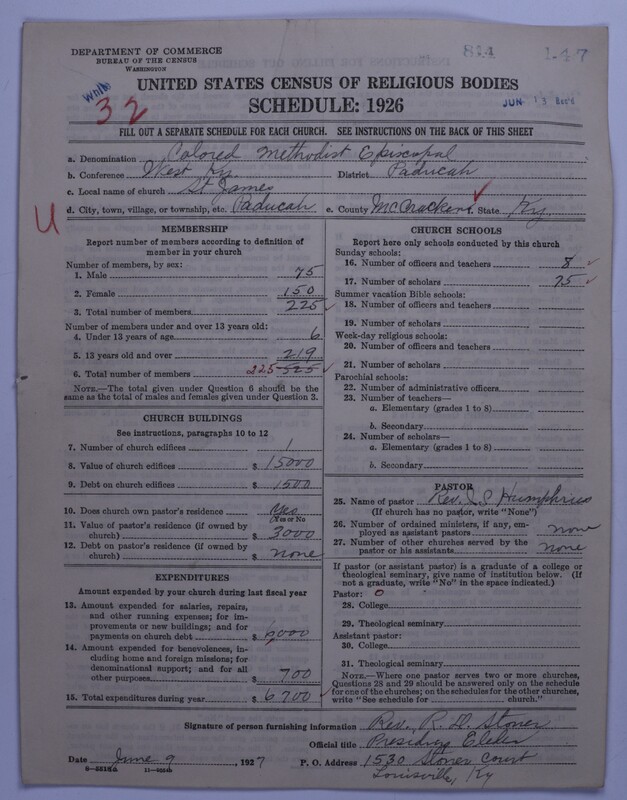 DEPARTMENT OF COMMERCE
BUREAU OF THE CENSUS
WASHINGTON
814
147
White
32
UNITED STATES CENSUS OF RELIGIOUS BODIES
SCHEDULE: 1926
JUN 13 Rec'd
FILL OUT A SEPARATE SCHEDULE FOR EACH CHURCH. SEE INSTRUCTIONS ON THE BACK OF THIS SHEET
a. Denomination Colored Methodist Episcopal
b. Conference West Ky. District Paducah
c. Local name of church St James
d. City, town, village, or township, etc. Paducah e. County McCracken State Ky.
U
MEMBERSHIP
Report number of members according to definition of
member in your church
Number of members, by sex:
1. Male 75
2. Female 150
3. Total number of members 225
Number of members under and over 13 years old:
4. Under 13 years of age 6
5. 13 years old and over 219
6. Total number of members 225 525
NOTE.—The total given under Question 6 should be the
same as the total of males and females given under Question 3.
CHURCH BUILDINGS
See instructions, paragraphs 10 to 12
7. Number of church edifices 1
8. Value of church edifices $ 15000
9. Debt on church edifices $ 1500
10. Does church own pastor's residence Yes
(Yes or No)
11. Value of pastor's residence (if owned by
church) $ 3000
12. Debt on pastor's residence (if owned by
church) $ none
EXPENDITURES
Amount expended by your church during last fiscal year
13. Amount expended for salaries, repairs,
and other running expenses; for im-
provements or new buildings; and for
payments on church debt $ 6000
14. Amount expended for benevolences, in-
cluding home and foreign missions; for
denominational support; and for all
other purposes $ 700
15. Total expenditures during year $ 6700
CHURCH SCHOOLS
Report here only schools conducted by this church
Sunday schools:
16. Number of officers and teachers 8
17. Number of scholars 75
Summer vacation Bible schools:
18. Number of officers and teachers
19. Number of scholars
Week-day religious schools:
20. Number of officers and teachers
21. Number of scholars
Parochial schools:
22. Number of administrative officers
23. Number of teachers—
a. Elementary (grades 1 to 8)
b. Secondary
24. Number of scholars—
a. Elementary (grades 1 to 8)
b. Secondary
PASTOR
25. Name of pastor Rev. Humphries
(If church has no pastor, write "None")
26. Number of ordained ministers, if any, em-
ployed as assistant pastors none
27. Number of other churches served by the
pastor or his assistants none
If pastor (or assistant pastor) is a graduate of a college or
theological seminary, give name of institution below. (If
not a graduate, write "No" in the space indicated.)
Pastor: 0
28. College
29. Theological seminary
Assistant pastor:
30. College
31. Theological seminary
NOTE.—Where one pastor serves two or more churches,
Questions 28 and 29 should be answered only on the schedule
for one of the churches; on the schedules for the other churches,
write "See schedule for church."
Signature of person furnishing information Rev. R. D. Stoner
Official title Presiding Elder
Date June 9, 1927 P. O. Address 1530 Stoner Court
Louisville, Ky